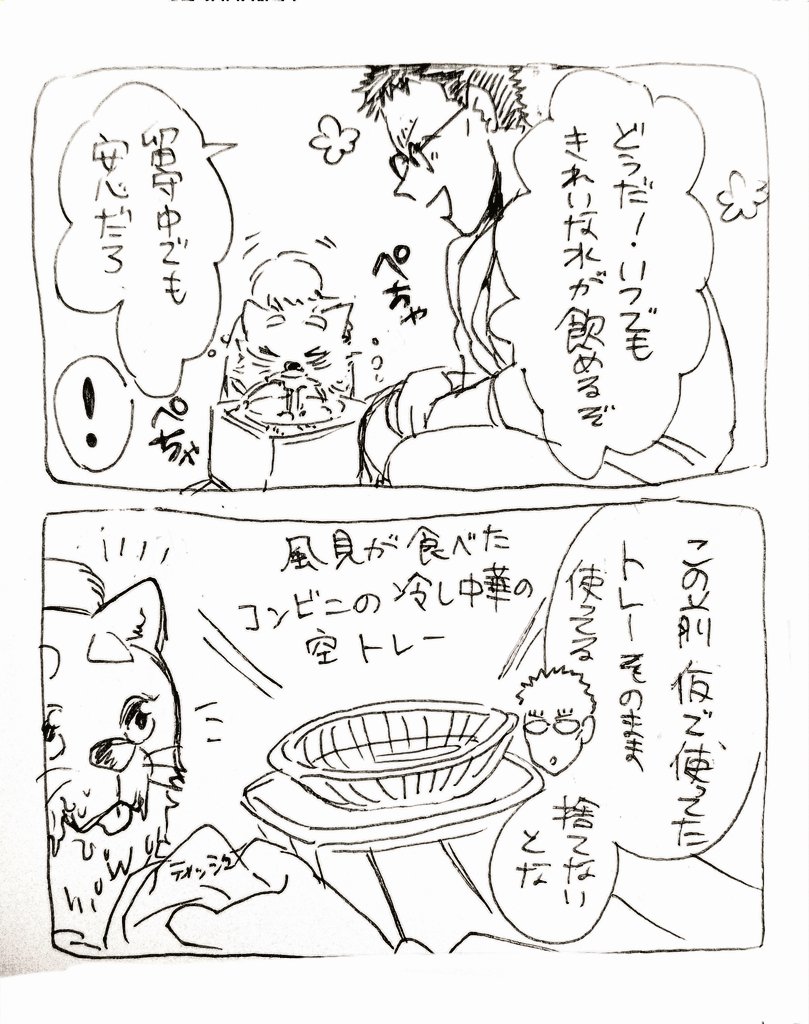 どうだ！いつでも
きれいな水が
飲めるぞ
留守中でも
安心だろ
ぺちゃ
ぺちゃ
！
この前仮で使ってた
トレーそのまま
使ってる
捨てない
とな
風見が食べた
コンビニの冷し中華の
空トレー
ティッシュ